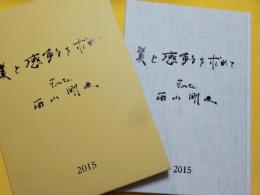 美と感動を求めて
西山剛史
2015
美と感動を求めて
西山剛史
2015